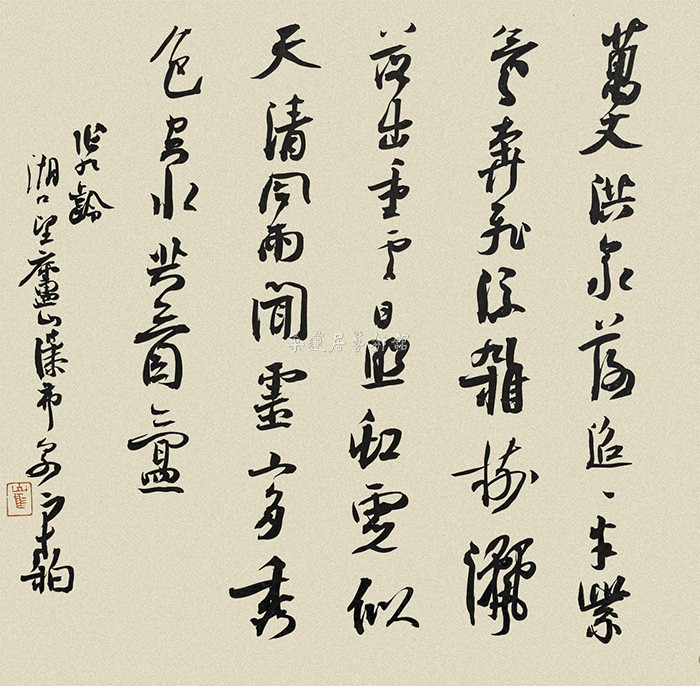 萬丈洪泉落迢〻半紫
氛奔飛流雜樹灑
落出重雲日照虹霓似
天清風雨聞靈山多秀
色空水共氤氳
張九齡
湖口望廬山瀑布泉